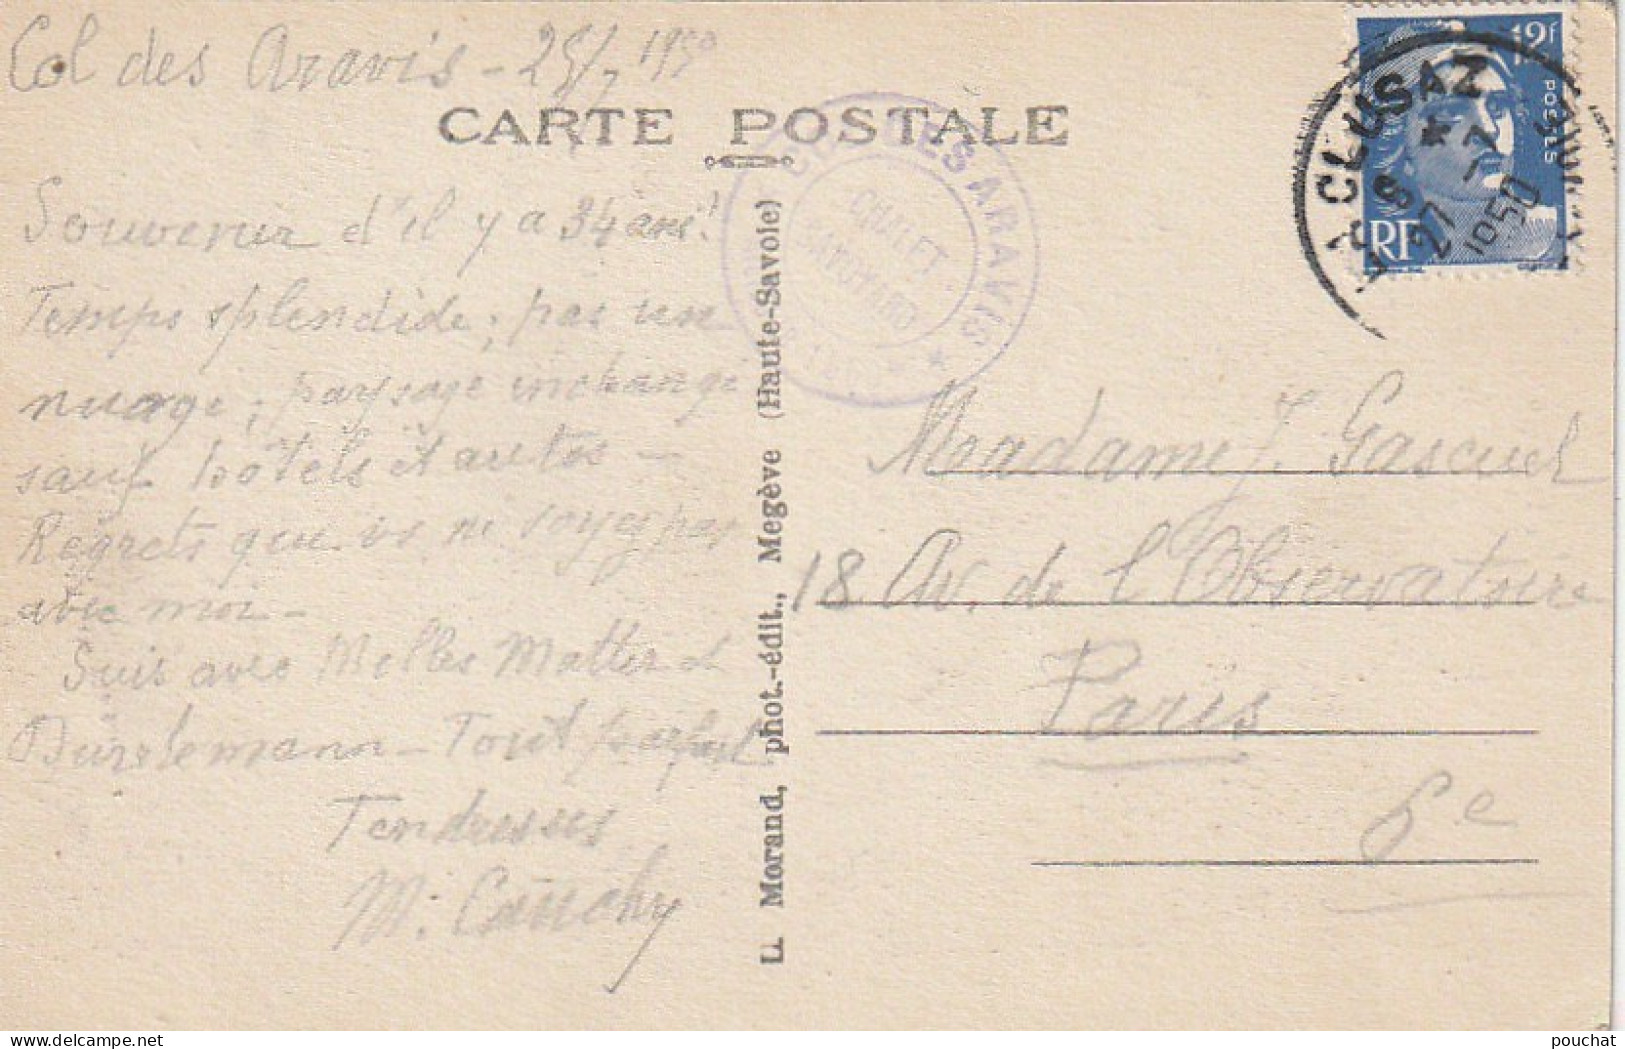 Col des Aravis - 25/7 1950
CARTE POSTALE
Souvenir d'il y a 34 ans!
Temps splendide, pas un
nuage; paysage inchangé
sauf hôtels et autos -
Regrets que vs ne soyez pas
avec moi -
Suis avec Melles Matter et
- Tout parfait
Tendresses
M. Cauchy
L. Morand, phot.-édit., Megève (Haute-Savoie)
COL DES ARAVIS
CHALET
SAVOYARD
12f
POSTES
RF
LA CLUSAZ
27 - 7
1950
HTE SAVOIE
Madame J. Gascuel
18 Av. de l'Observatoire
Paris
6e
pouchat